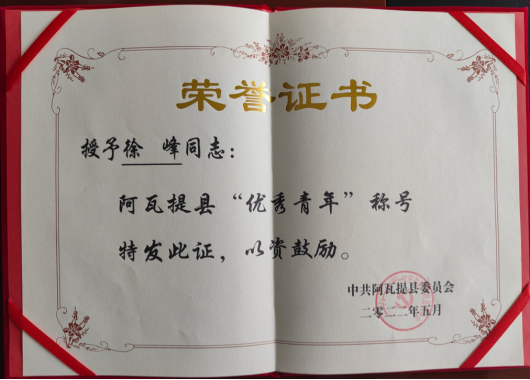 荣誉证书
授予徐 峰同志：
阿瓦提县“优秀青年”称号
特发此证，以资鼓励。
中共阿瓦提县委员会
二零二二年五月